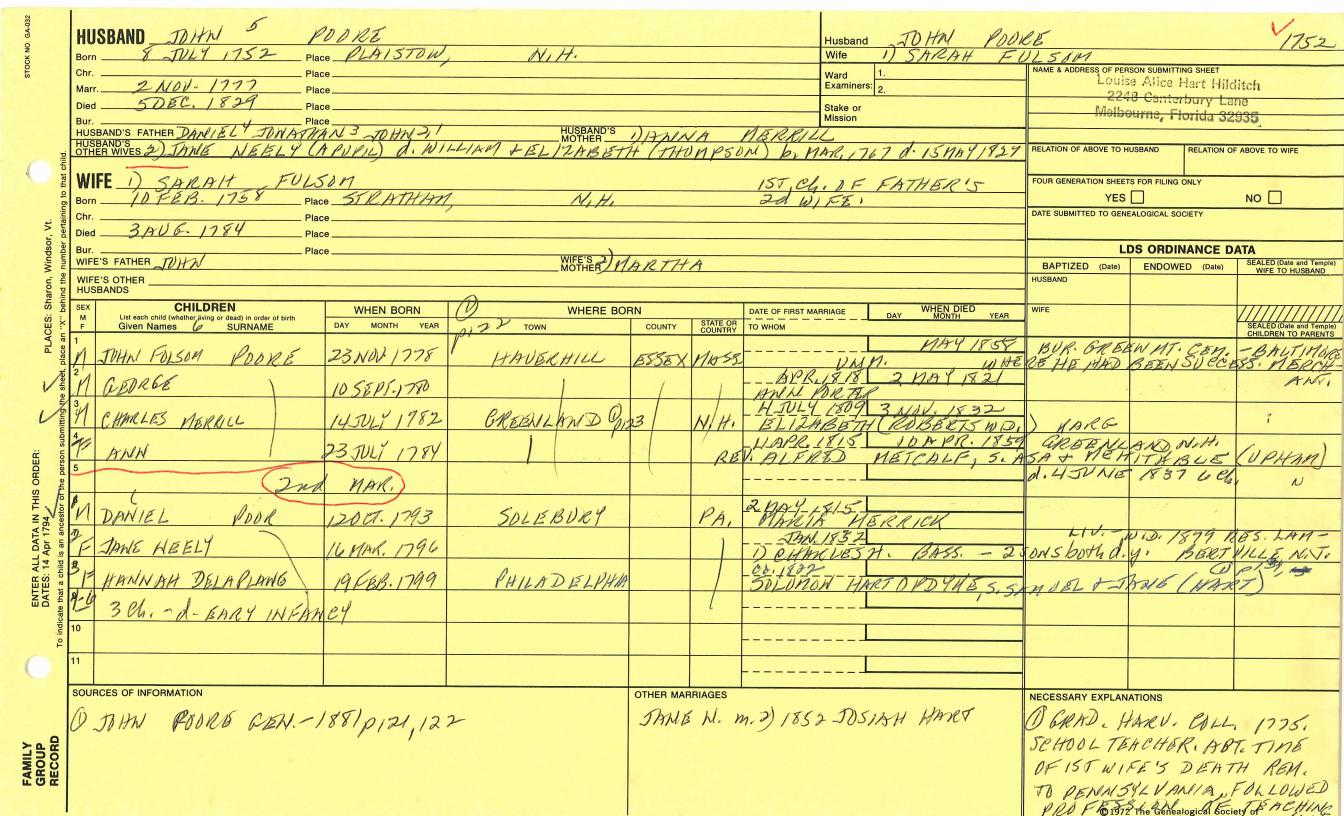 STOCK NO. GA-032
HUSBAND JOHN 5 POORE
Born 8 JULY 1752 Place PLAISTOW, N.H.
Chr. Place
Marr. 2 NOV. 1777 Place
Died 5 DEC. 1829 Place
Bur. Place
HUSBAND'S FATHER DANIEL4 JONATHAN3 JOHN2,1 HUSBAND'S MOTHER 1) ANNA MERRILL
HUSBAND'S OTHER WIVES 2) JANE NEELY (A PUPIL) d. WILLIAM + ELIZABETH (THOMPSON) b. MAR, 1767 d. 15 MAY 1827
Husband JOHN POORE 1752
Wife 1) SARAH FULSOM
Ward Examiners: 1.
2.
Stake or Mission
NAME & ADDRESS OF PERSON SUBMITTING SHEET
Louise Alice Hart Hilditch
2248 Canterbury Lane
Melbourne, Florida 32935
RELATION OF ABOVE TO HUSBAND RELATION OF ABOVE TO WIFE
FOUR GENERATION SHEETS FOR FILING ONLY
YES NO
DATE SUBMITTED TO GENEALOGICAL SOCIETY
WIFE 1) SARAH FULSOM 1ST, Ch. OF FATHER'S
Born 10 FEB. 1758 Place STRATHAM, N.H. 2d WIFE.
Chr. Place
Died 3 AUG. 1784 Place
Bur. Place
WIFE'S FATHER JOHN WIFE'S MOTHER 2) MARTHA
WIFE'S OTHER HUSBANDS
LDS ORDINANCE DATA
BAPTIZED (Date) ENDOWED (Date) SEALED (Date and Temple) WIFE TO HUSBAND
HUSBAND
WIFE
SEALED (Date and Temple) CHILDREN TO PARENTS
SEX M F CHILDREN WHEN BORN ① WHERE BORN DATE OF FIRST MARRIAGE WHEN DIED
List each child (whether living or dead) in order of birth
Given Names 6 SURNAME DAY MONTH YEAR p122 TOWN COUNTY STATE OR COUNTRY TO WHOM DAY MONTH YEAR
1 M JOHN FOLSOM POORE 23 NOV 1778 HAVERHILL ESSEX MASS UNM. MAY 1857 BUR. GREEN MT. CEM. - BALTIMORE
WHERE HE HAD BEEN SUCCESS. MERCH-
ANT.
2 M GEORGE 10 SEPT. 1780 APR. 1818 2 MAY 1821
ANN PORTER
3 M CHARLES MERRILL 14 JULY 1782 GREENLAND ① p123 N.H. 4 JULY 1809 3 NOV. 1832
ELIZABETH (ROBERTS WD.) HARG
4 F ANN 23 JULY 1784 11 APR. 1815 10 APR. 1859 GREENLAND N.H.
REV. ALFRED METCALF, S. ASA & MEHITABLE (UPHAM)
5 2nd MAR. d. 4 JUNE 1837 6 Ch.
6 M DANIEL POOR 12 OCT. 1793 SOLEBURY PA. 2 MAY 1815
MARIA MERRICK
7 F JANE NEELY 16 MAR. 1796 JAN. 1832 LIV. - WD. 1879 RES. LAM-
1) CHARLES H. BASS - 2 sons both d.y. BERTVILLE N.J.
8 F HANNAH DELAPLANE 19 FEB. 1799 PHILADELPHIA
SOLOMON HART OPDYKE, S. SAMUEL & JANE (HART)
3 Ch. - d- EARY INFANCY
10
11
SOURCES OF INFORMATION
① JOHN POORE GEN. - 1881 p121, 122
OTHER MARRIAGES
JANE N. m. 2) 1852 JOSIAH HART
NECESSARY EXPLANATIONS
① GRAD. HARV. COLL. 1775.
SCHOOL TEACHER. ABT. TIME
OF 1ST WIFE'S DEATH REM.
TO PENNSYLVANIA, FOLLOWED
PROFESSION OF TEACHING
©1972 The Genealogical Society of
PLACES: Sharon, Windsor, Vt.
ENTER ALL DATA IN THIS ORDER:
DATES: 14 Apr 1794
To indicate that a child is an ancestor of the person submitting the sheet, place an "X" behind the number pertaining to that child.
FAMILY
GROUP
RECORD